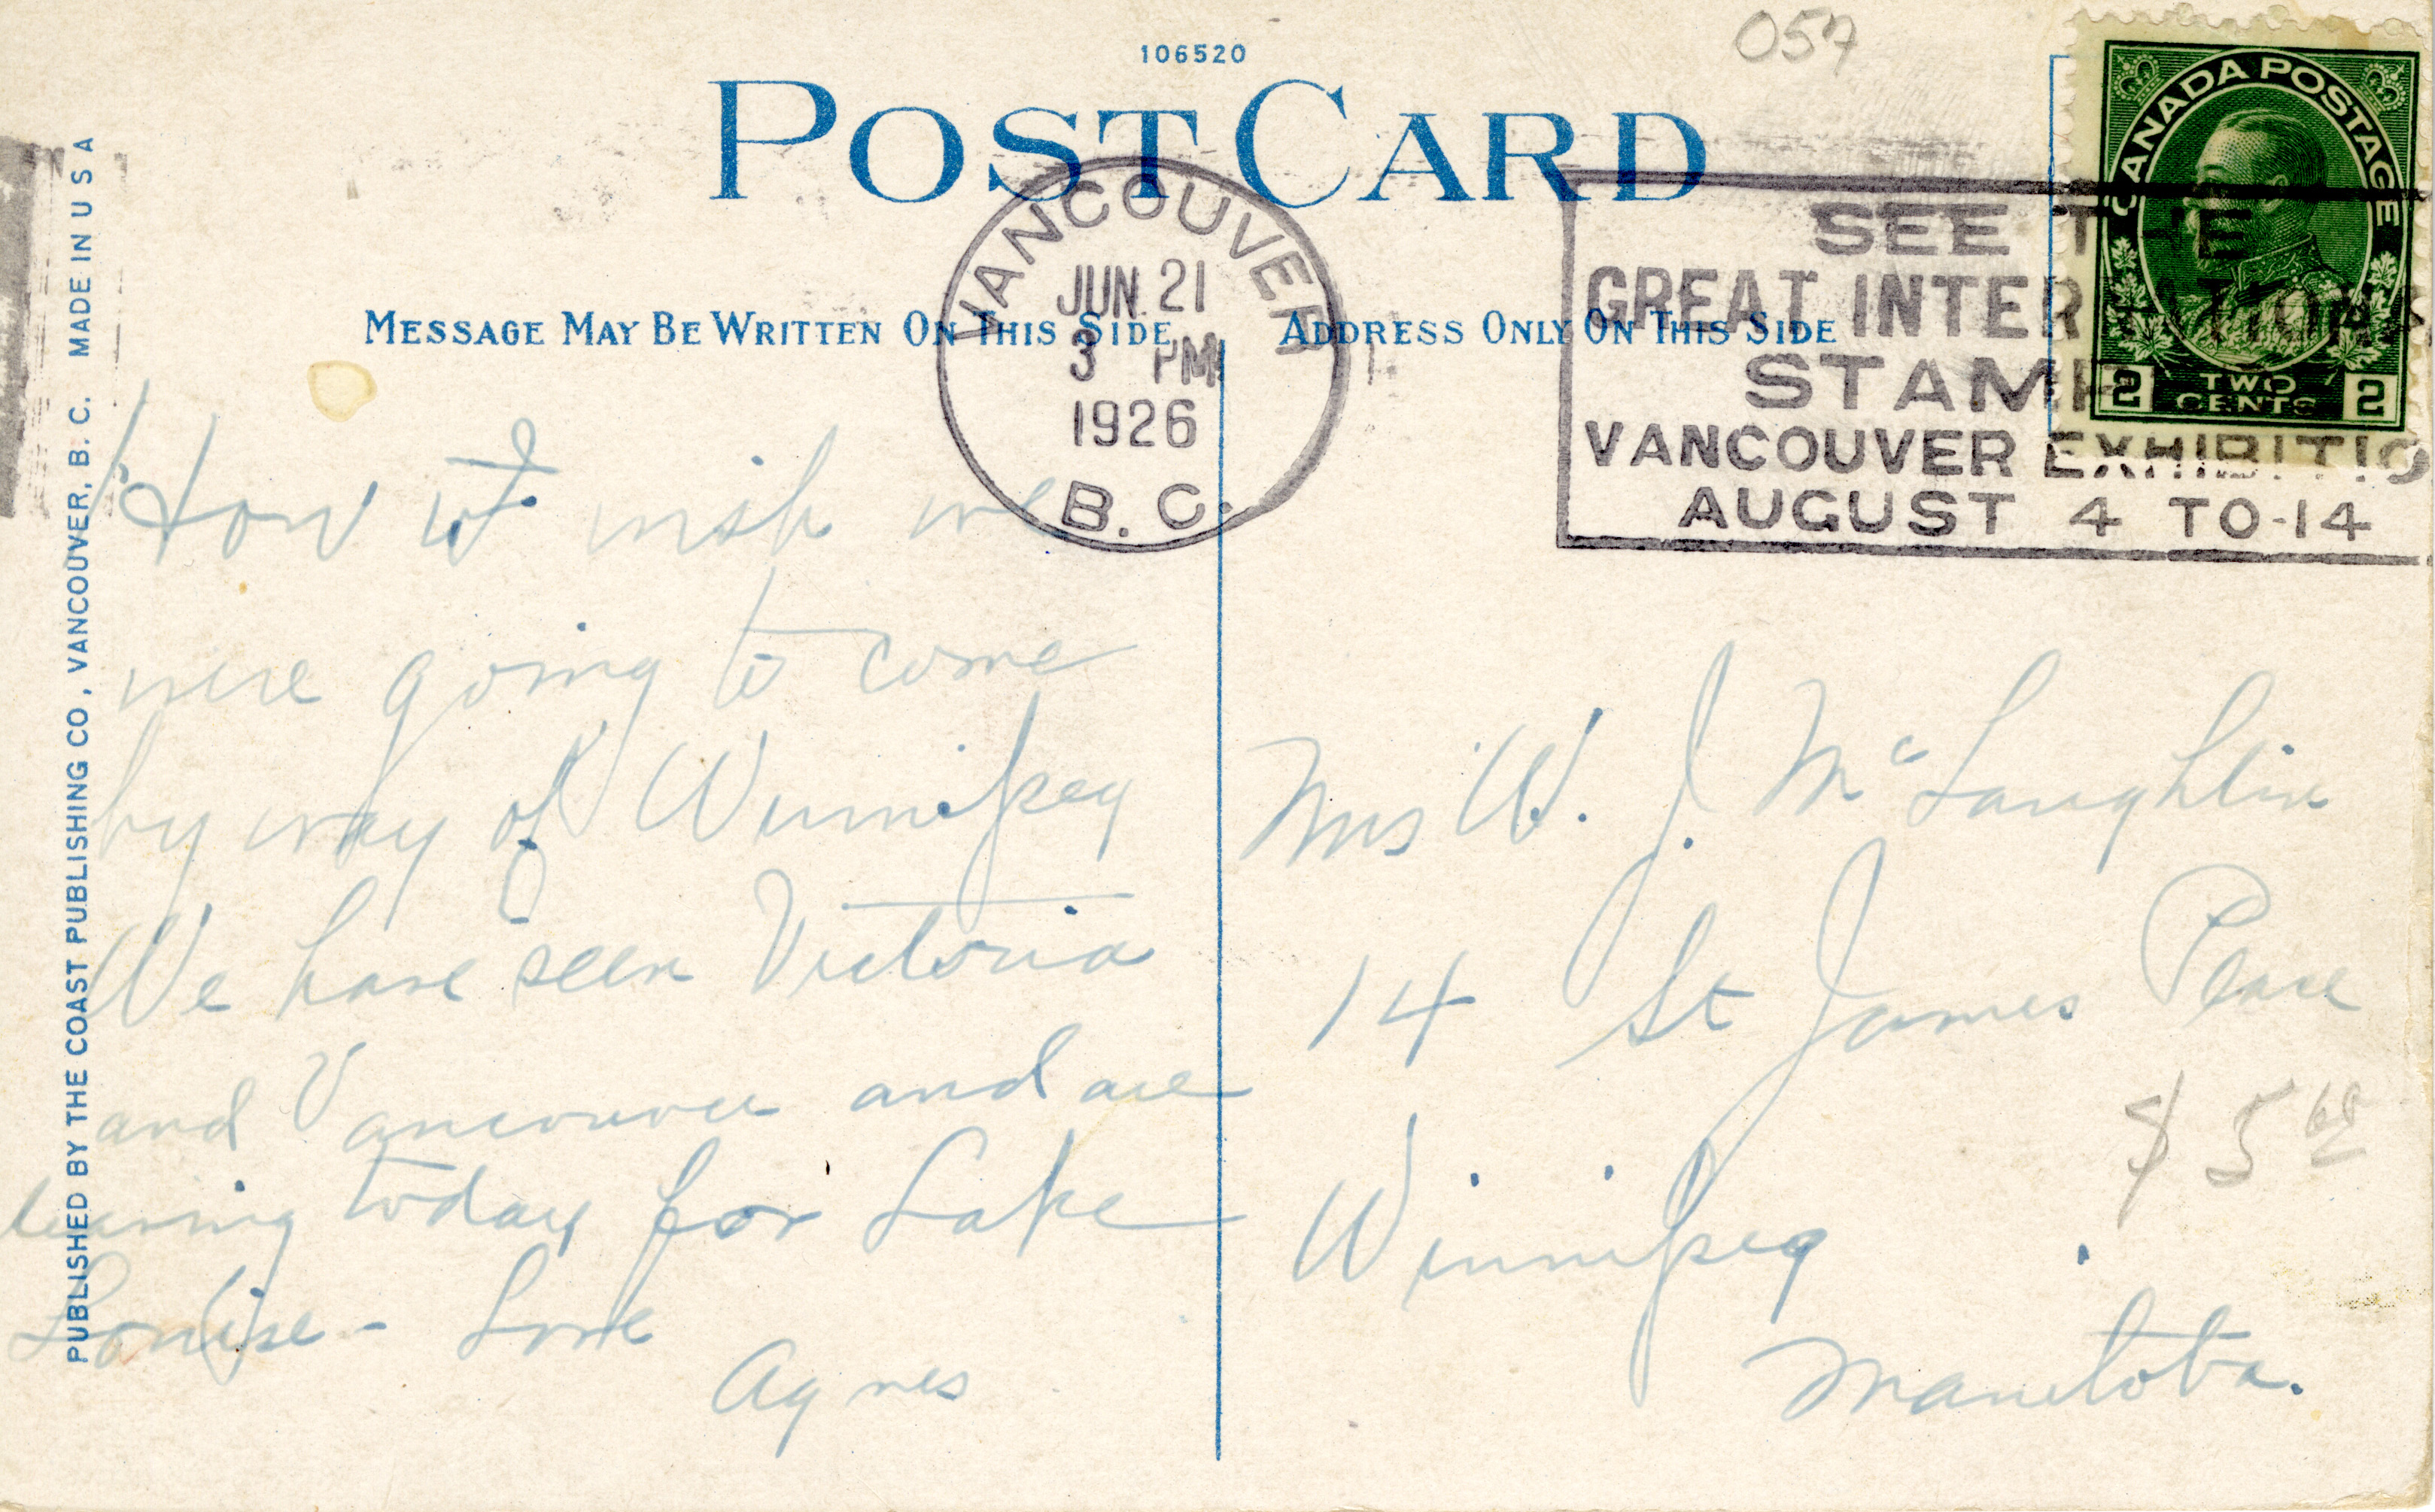 106520
057
POST CARD
CANADA POSTAGE
2 TWO CENTS 2
VANCOUVER
JUN 21
3 PM
1926
B. C.
SEE THE
GREAT INTERNATIONAL
STAMP
VANCOUVER EXHIBITIO
AUGUST 4 TO 14
MESSAGE MAY BE WRITTEN ON THIS SIDE
ADDRESS ONLY ON THIS SIDE
PUBLISHED BY THE COAST PUBLISHING CO, VANCOUVER, B. C. MADE IN U S A
How I wish we
were going to come
by way of Winnipeg
We have seen Victoria
and Vancouver and are
leaving today for Lake
Louise - Love
Agnes
Mrs W. J. McLaughlin
14 St James Place
Winnipeg
Manitoba.
$ 5 00